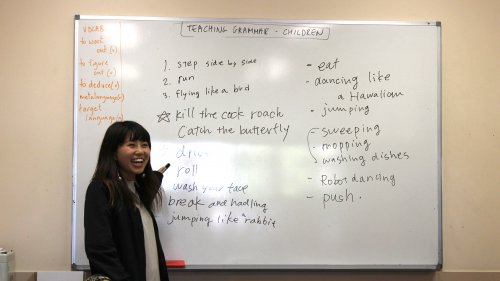 TEACHING GRAMMAR - CHILDREN
VOCAB
to work
out (v)
to figure
out (v)
to deduce (v)
metalanguage
target
language
1. step side by side
2. run
3. flying like a bird
☆ kill the cock roach
Catch the butterfly
roll
wash your face
break and
jumping like "rabbit
- eat
- dancing like
a Hawaiian
- jumping
- sweeping
- mopping
washing dishes
- Robot dancing
- push.